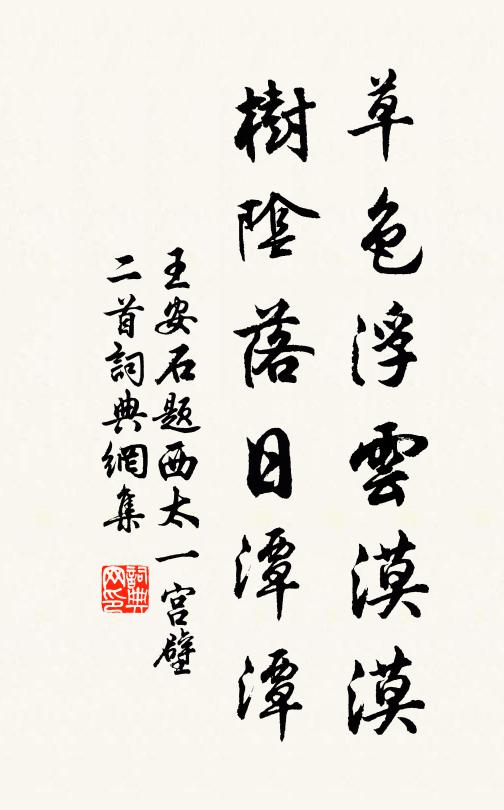 草色浮雲漠漠
樹陰落日潭潭
王安石题西太一宫壁
二首詞典網集
詞典网印